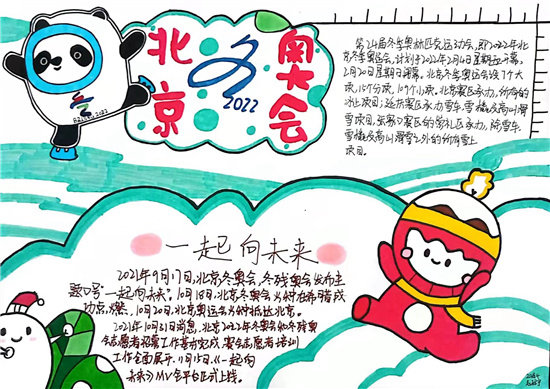 北京
冬
奥大会
2022
第24届冬季奥林匹克运动会,即2022年北
京冬季奥运会,计划于2022年2月4日星期五开幕,
2月20日星期日闭幕。北京冬季奥运会设7个大
项,15个分项,109个小项。北京赛区承办所有的
冰上项目;延庆赛区承办雪车、雪橇及高山滑
雪项目;张家口赛区的崇礼区承办除雪车、
雪橇及高山滑雪之外的所有雪上
项目。
一起向未来
2021年9月17日,北京冬奥会、冬残奥会发布主
题口号"一起向未来"。10月18日,北京冬奥会火种在希腊成
功采燃。10月20日,北京冬奥运会火种抵达北京。
2021年10月31日消息,北京2022年冬奥会和冬残奥
会志愿者招募工作
工作全面展开。11月15日,《一起向
未来》MV全平台正式上线。